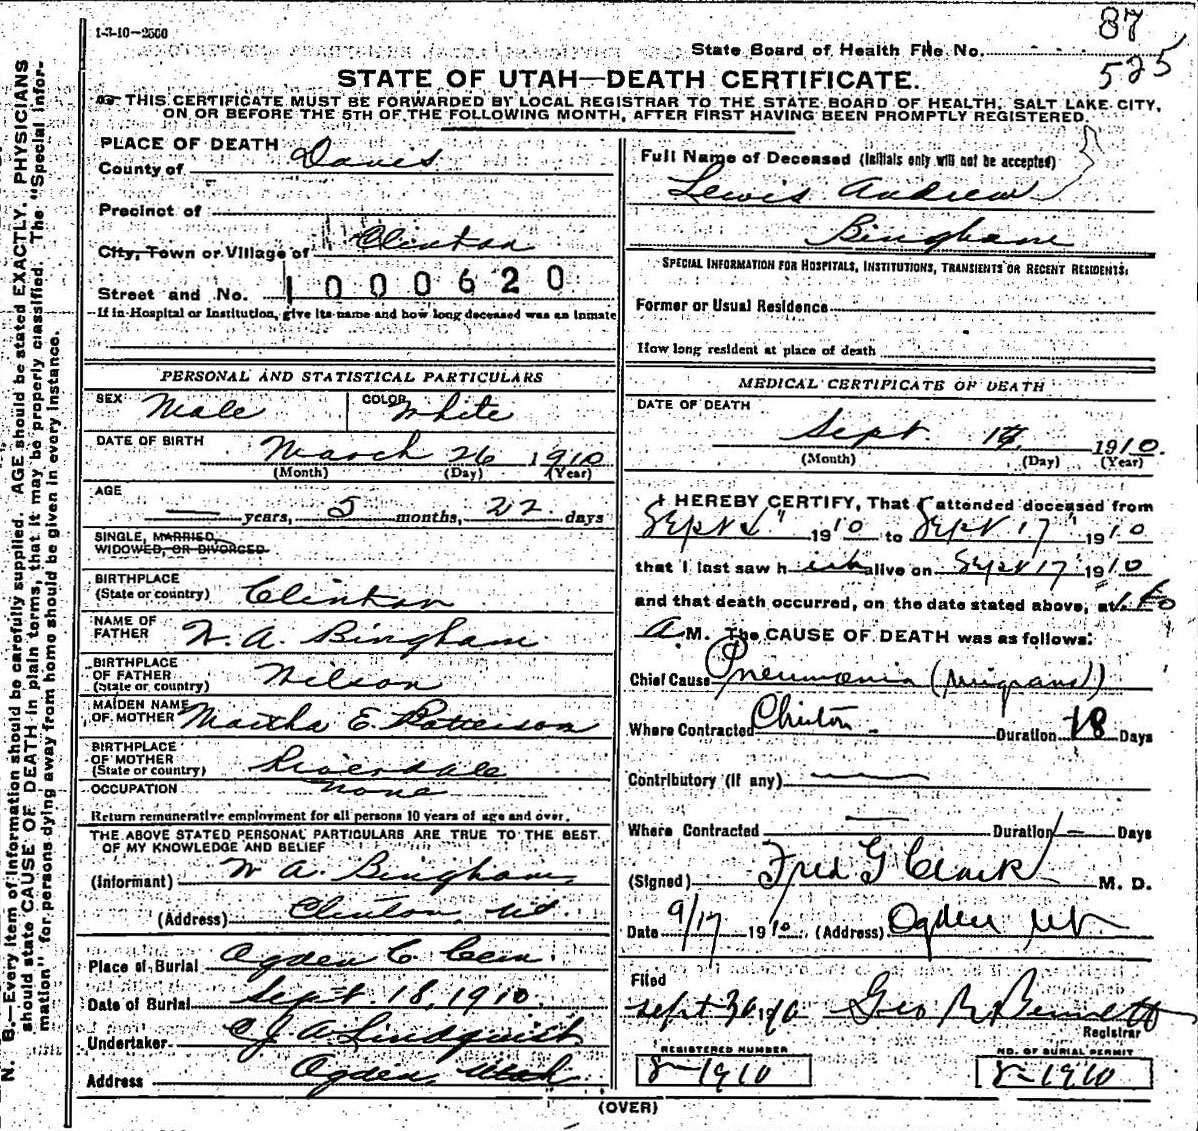 1-3-10-2500
87
State Board of Health File No.
525
STATE OF UTAH—DEATH CERTIFICATE.
THIS CERTIFICATE MUST BE FORWARDED BY LOCAL REGISTRAR TO THE STATE BOARD OF HEALTH, SALT LAKE CITY,
ON OR BEFORE THE 5TH OF THE FOLLOWING MONTH, AFTER FIRST HAVING BEEN PROMPTLY REGISTERED.
PLACE OF DEATH
County of Davis
Precinct of
City, Town or Village of Clinton
Street and No. 1000620
If in Hospital or Institution, give its name and how long deceased was an inmate
PERSONAL AND STATISTICAL PARTICULARS
SEX Male COLOR White
DATE OF BIRTH March 26 1910
(Month) (Day) (Year)
AGE
— years, 5 months, 22 days
SINGLE, MARRIED,
WIDOWED, OR DIVORCED
BIRTHPLACE
(State or country) Clinton
NAME OF
FATHER W. A. Bingham
BIRTHPLACE
OF FATHER
(State or country) Wilson
MAIDEN NAME
OF MOTHER Martha E. Patterson
BIRTHPLACE
OF MOTHER
(State or country) Riverdale
OCCUPATION none
Return remunerative employment for all persons 10 years of age and over.
THE ABOVE STATED PERSONAL PARTICULARS ARE TRUE TO THE BEST
OF MY KNOWLEDGE AND BELIEF
(Informant) W A. Bingham
(Address) Clinton, Ut.
Place of Burial Ogden C. Cem.
Date of Burial Sept. 18, 1910.
Undertaker C J A Lindquist
Address Ogden, Utah
Full Name of Deceased (Initials only will not be accepted)
Lewis Andrew
Bingham
SPECIAL INFORMATION FOR HOSPITALS, INSTITUTIONS, TRANSIENTS OR RECENT RESIDENTS.
Former or Usual Residence
How long resident at place of death
MEDICAL CERTIFICATE OF DEATH
DATE OF DEATH
Sept. 17 1910.
(Month) (Day) (Year)
I HEREBY CERTIFY, That I attended deceased from
Sept 1910 to Sept 17" 1910
that I last saw h im alive on Sept 17" 1910
and that death occurred, on the date stated above, at
A M. The CAUSE OF DEATH was as follows:
Chief Cause Pneumonia
Where Contracted Clinton Duration 18 Days
Contributory (if any) —
Where Contracted — Duration — Days
(Signed) Fred G Clark M. D.
Date 9/17 1910 (Address) Ogden Ut
Filed
Sept 30 1910 Geo R Bennett
Registrar
REGISTERED NUMBER
8-1910
NO. OF BURIAL PERMIT
8-1910
(OVER)
N. B.—Every item of information should be carefully supplied. AGE should be stated EXACTLY. PHYSICIANS
should state CAUSE OF DEATH in plain terms, that it may be properly classified. The "Special Infor-
mation" for persons dying away from home should be given in every instance.